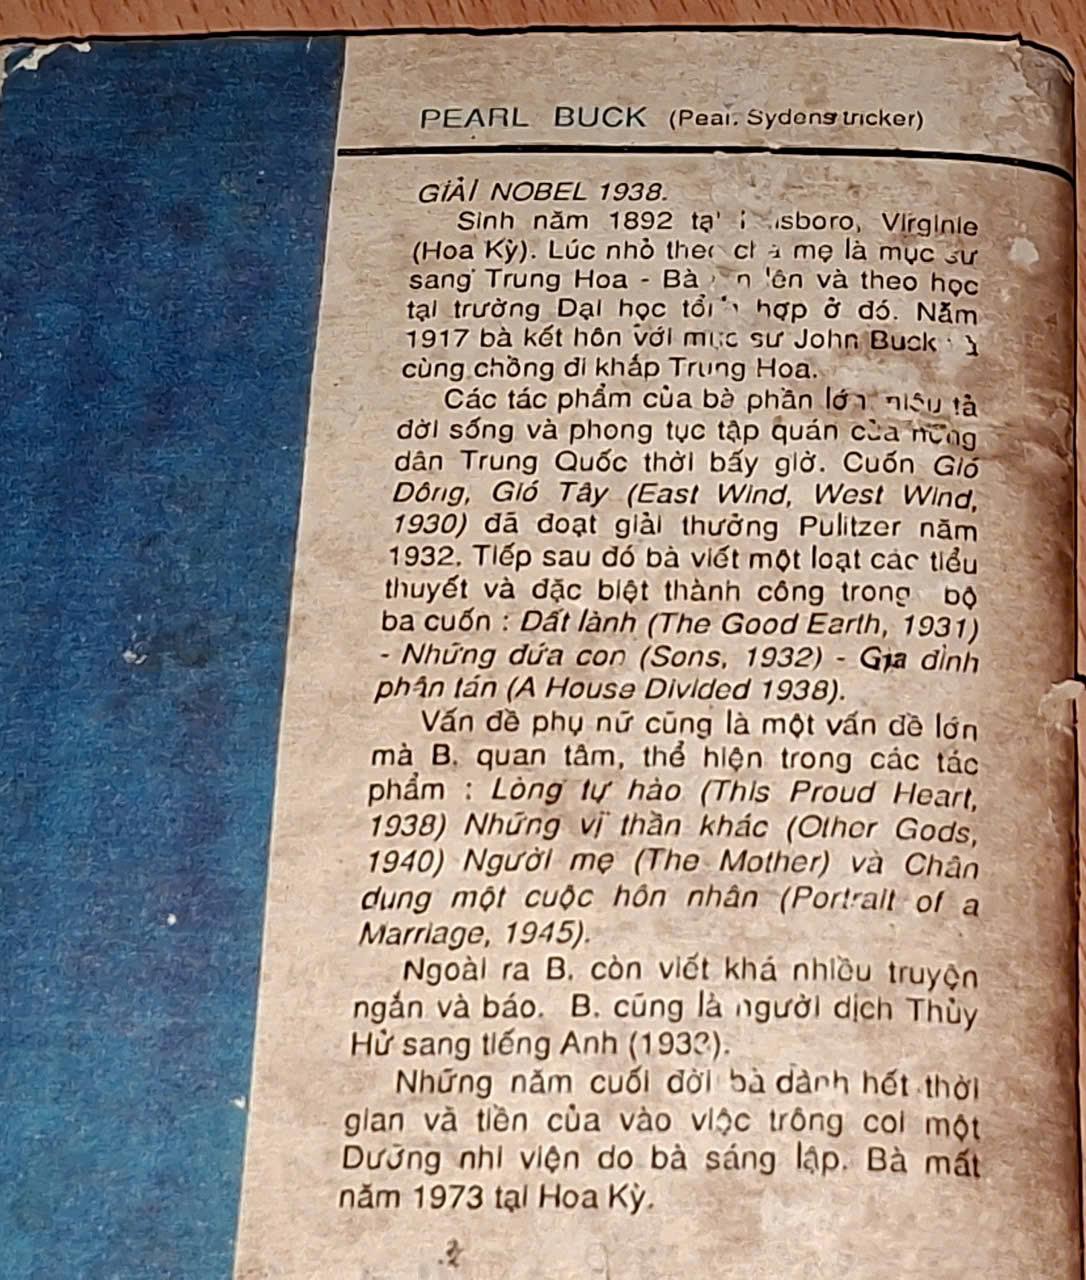 PEARL BUCK (Pearl Sydenstricker)
GIẢI NOBEL 1938.
Sinh năm 1892 tại Virginie
(Hoa Kỳ). Lúc nhỏ theo cha mẹ là mục sư
sang Trung Hoa - Bà lớn lên và theo học
tại trường Đại học tổng hợp ở đó. Năm
1917 bà kết hôn với mục sư John Buck và
cùng chồng đi khắp Trung Hoa.
Các tác phẩm của bà phần lớn miêu tả
đời sống và phong tục tập quán của nông
dân Trung Quốc thời bấy giờ. Cuốn Gió
Đông, Gió Tây (East Wind, West Wind,
1930) đã đoạt giải thưởng Pulitzer năm
1932. Tiếp sau đó bà viết một loạt các tiểu
thuyết và đặc biệt thành công trong bộ
ba cuốn : Đất lành (The Good Earth, 1931)
- Những đứa con (Sons, 1932) - Gia đình
phân tán (A House Divided 1938).
Vấn đề phụ nữ cũng là một vấn đề lớn
mà B. quan tâm, thể hiện trong các tác
phẩm : Lòng tự hào (This Proud Heart,
1938) Những vị thần khác (Other Gods,
1940) Người mẹ (The Mother) và Chân
dung một cuộc hôn nhân (Portrait of a
Marriage, 1945).
Ngoài ra B. còn viết khá nhiều truyện
ngắn và báo. B. cũng là người dịch Thủy
Hử sang tiếng Anh
Những năm cuối đời bà dành hết thời
gian và tiền của vào việc trông coi một
Dưỡng nhi viện do bà sáng lập. Bà mất
năm 1973 tại Hoa Kỳ.